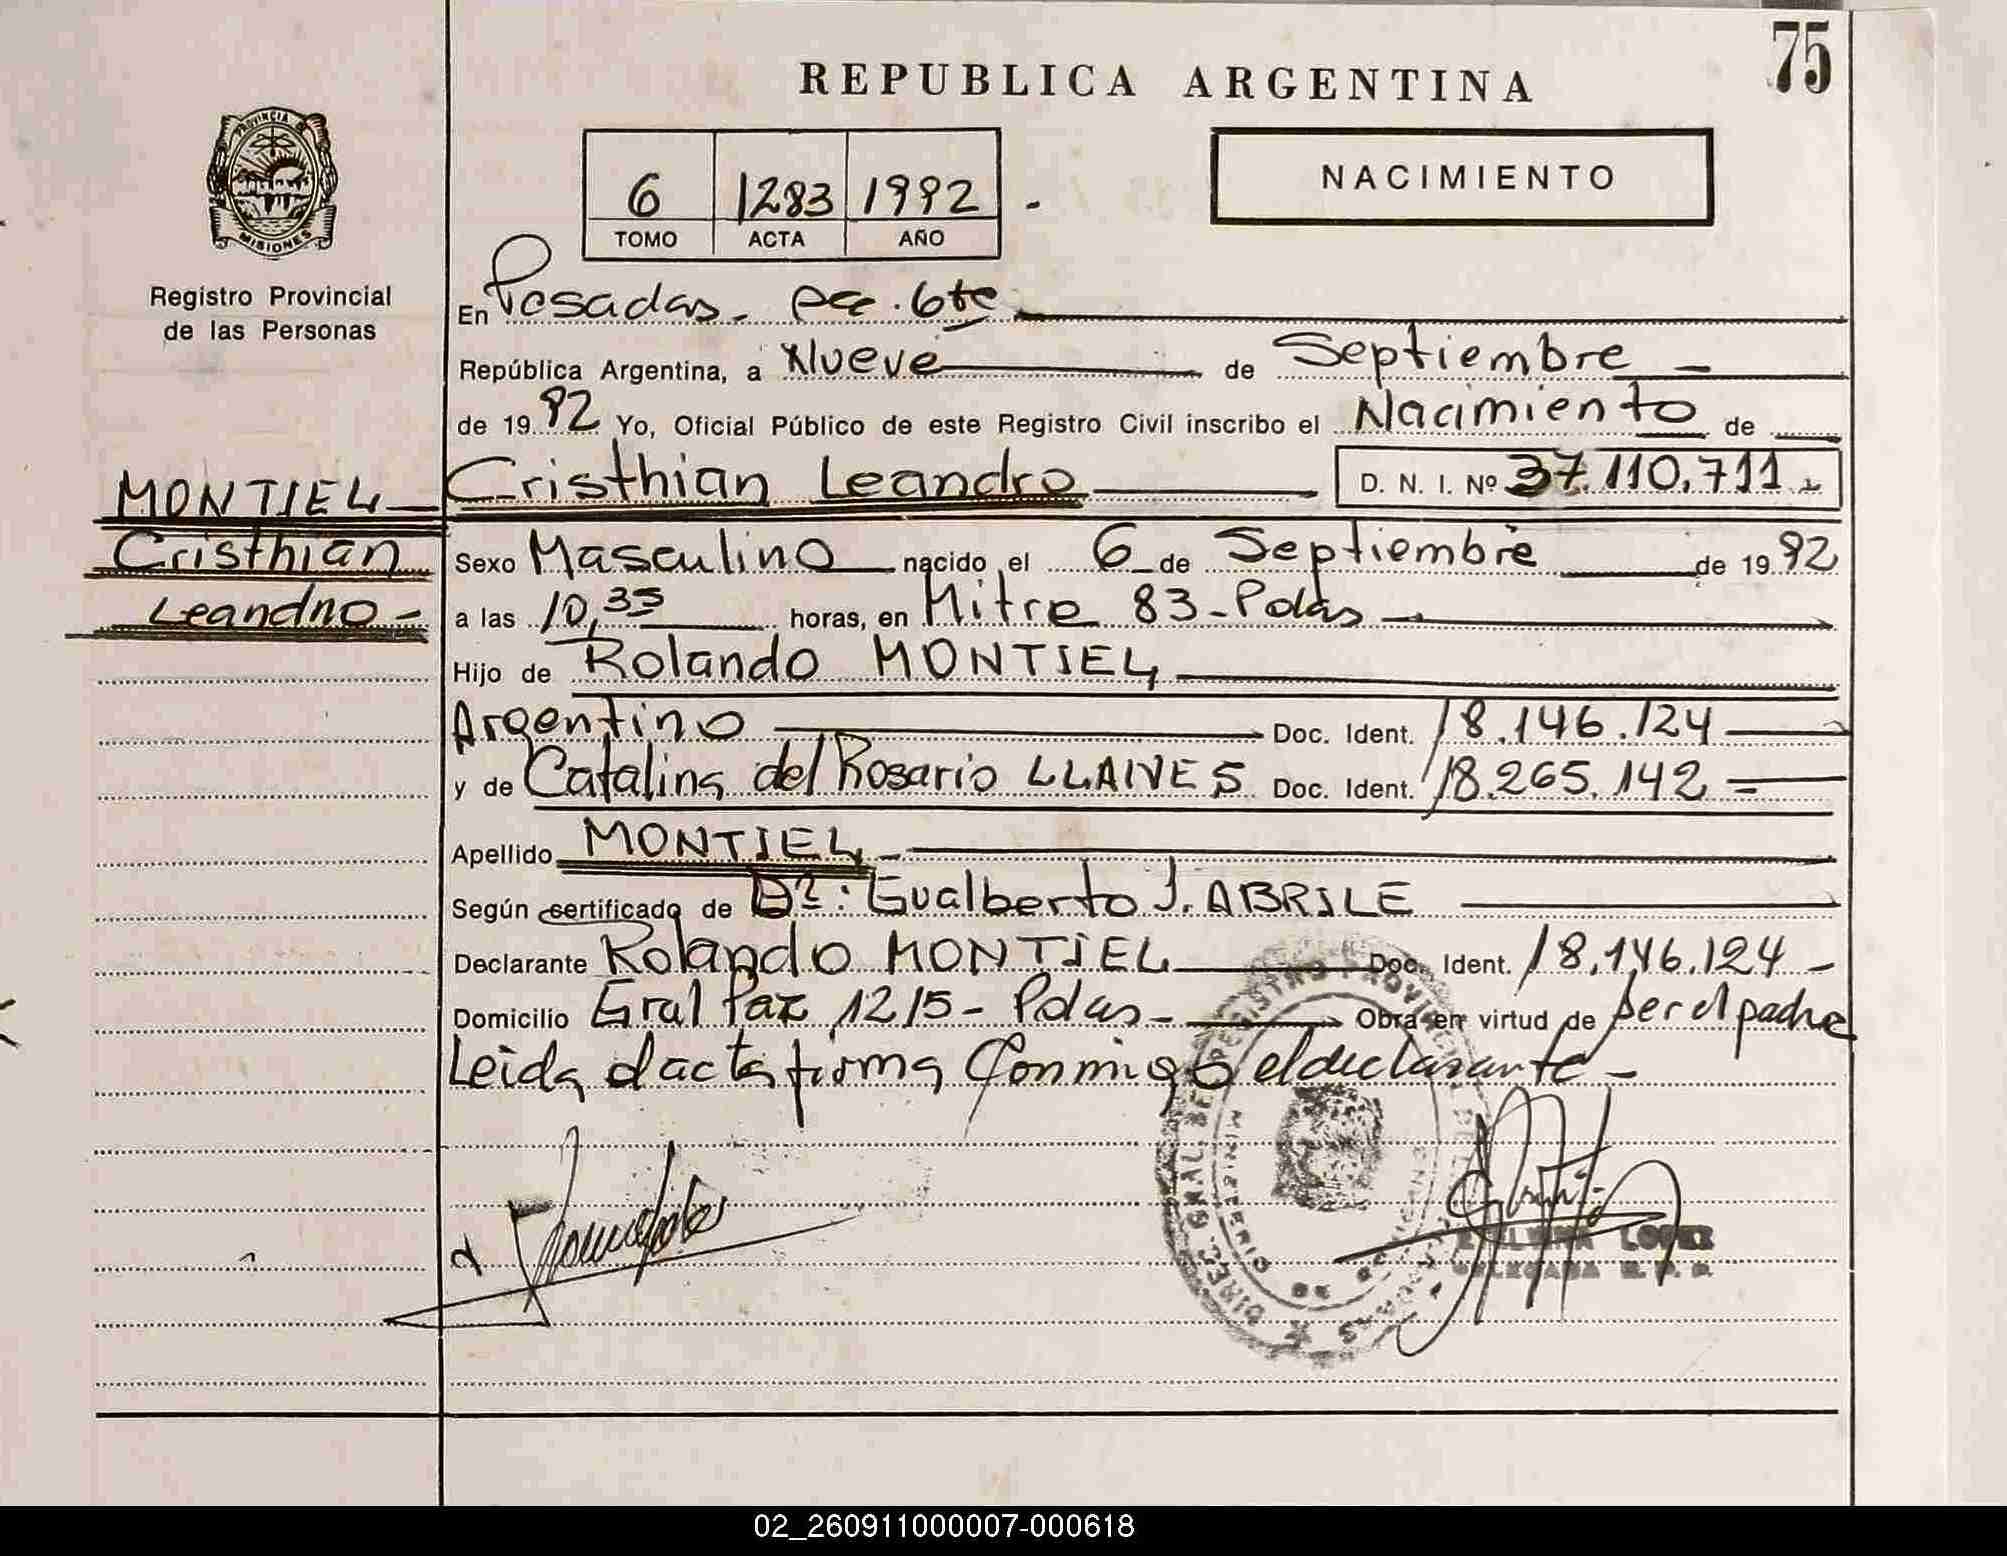 75
REPUBLICA ARGENTINA
PROVINCIA DE
MISIONES
Registro Provincial
de las Personas
NACIMIENTO
6 1283 1992 -
TOMO ACTA AÑO
En Posadas - 6te
República Argentina, a Nueve de Septiembre
de 19 92 Yo, Oficial Público de este Registro Civil inscribo el Nacimiento de
MONTIEL Cristhian Leandro D. N. I. Nº 37.110.711
Cristhian Sexo Masculino nacido el 6 de Septiembre de 19 92
Leandro - a las 10,35 horas, en Mitre 83 - Pdas
Hijo de Rolando MONTIEL
Argentino Doc. Ident. 18.146.124
y de Catalina del Rosario LLANES Doc. Ident. 18.265.142
Apellido MONTIEL
Según certificado de Dr: Gualberto J. ABRILE
Declarante Rolando MONTIEL Doc. Ident. 18.146.124 -
Domicilio Gral Paz 1215 - Pdas - Obra en virtud de ser el padre
Leida el acta firma conmigo el declarante -
LOPEZ
DELEGADA R. P. P.
02_260911000007-000618